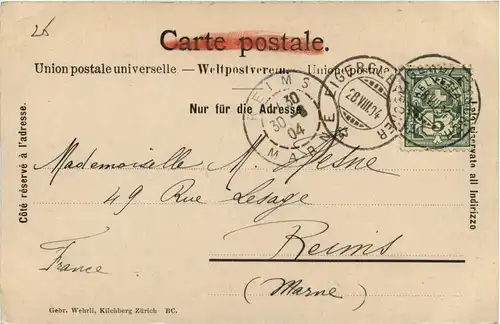 26
Carte postale.
Union postale universelle — Weltpostverein. Unione postale
Nur für die Adresse
REIMS
30
30 8
04
MARNE
EIGERGLETSCHER
28 VIII 04
5
Côté réservé à l'adresse.
Lato riservato all indirizzo
Mademoiselle M. Hesne
49 Rue Lesage
Reims
France
(Marne)
Gebr. Wehrli, Kilchberg Zürich BC.